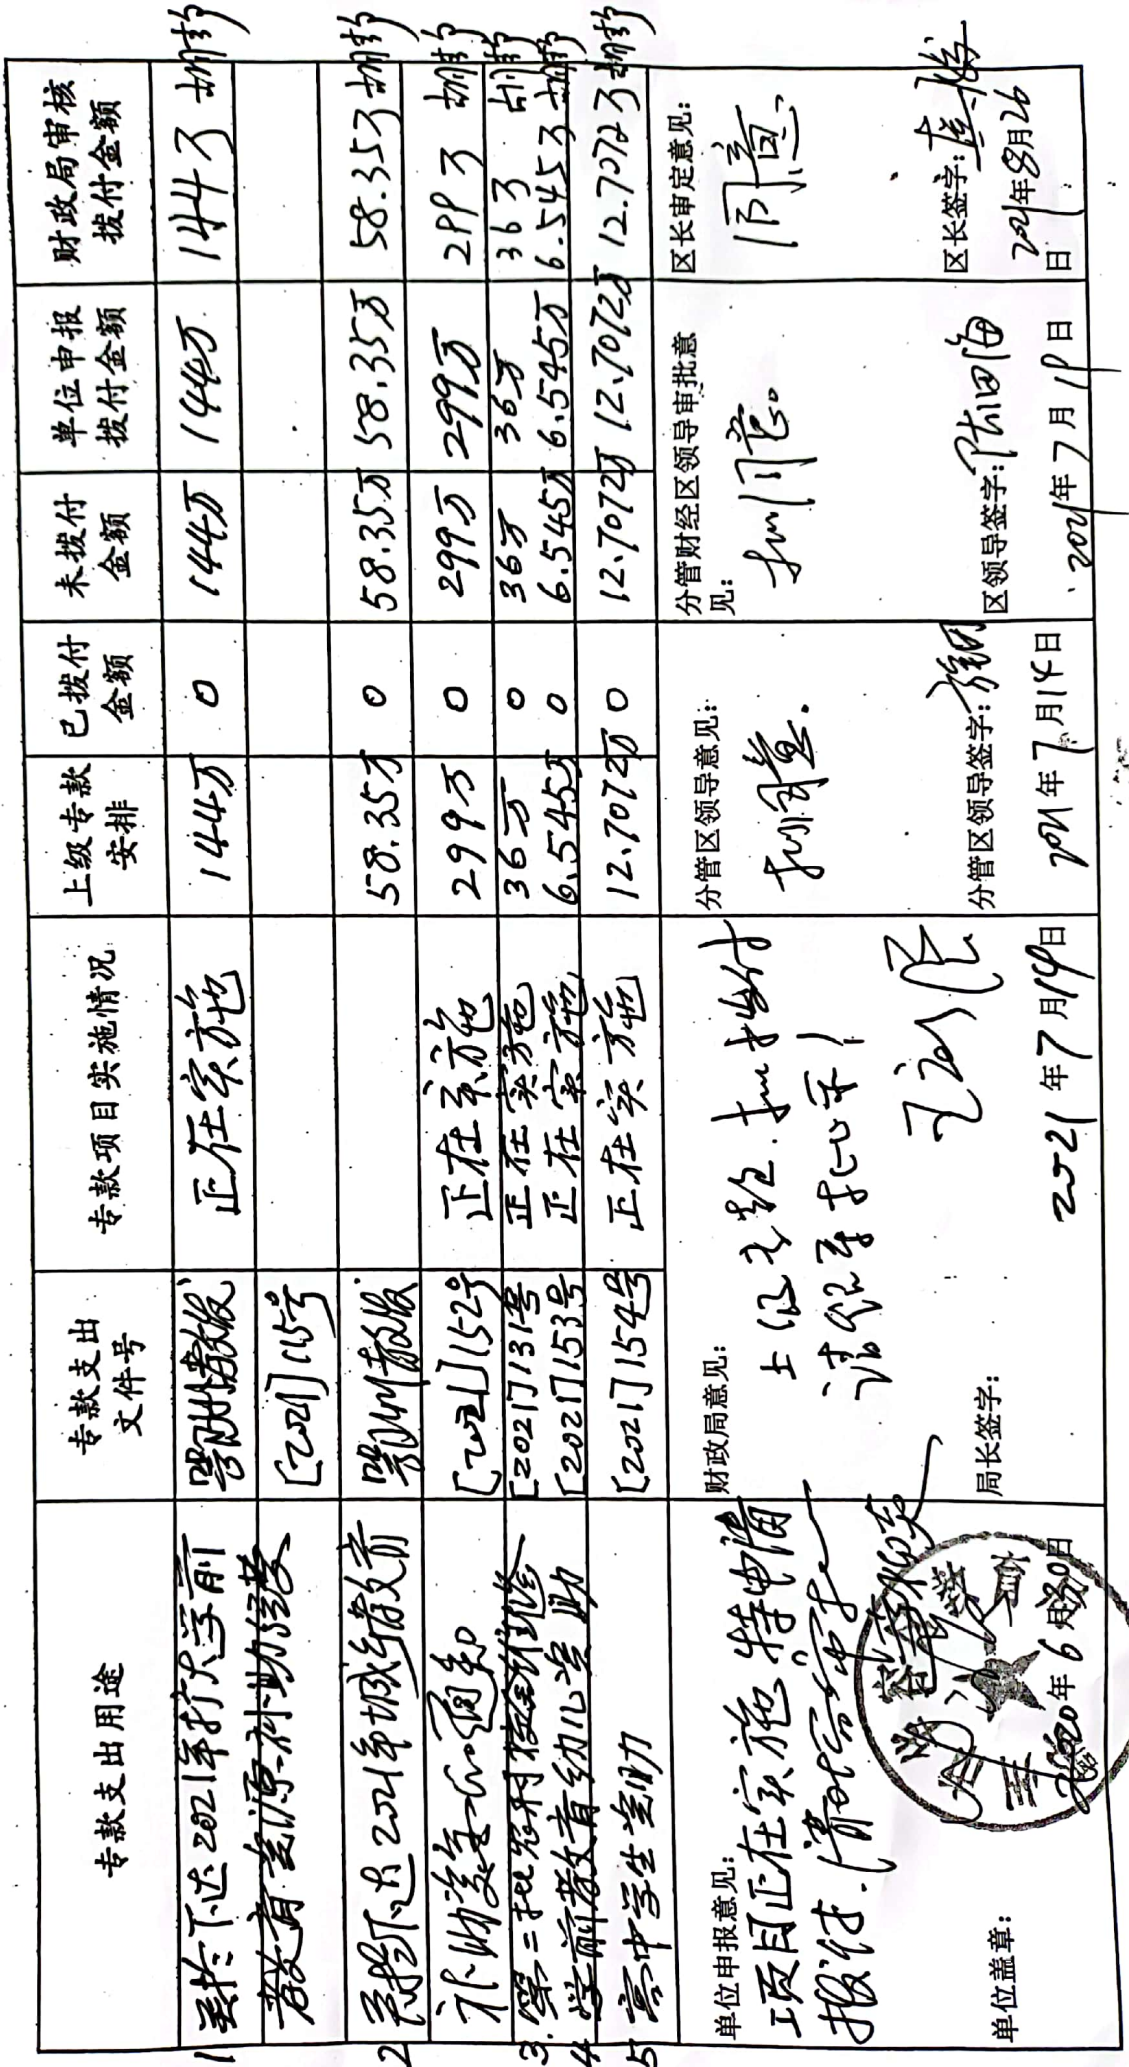 专款支出用途 专款支出文件号 专款项目实施情况 上级专款安排 已拨付金额 未拨付金额 单位申报拨付金额 财政局审核拨付金额
1 关于下达2021年扩大学前 鄂州财教发 正在实施 144万 0 144万 144万 144万
教育资源补助经费 [2021]115号
2 关于下达2021年城乡教育 鄂州财教发 58.35万 0 58.35万 58.35万 58.35万
[2021]152号 正在实施 299万 0 299万 299万 299万
3. 第二批农村校舍维修 [2021]131号 正在实施 36万 0 36万 36万 36万
4 学前教育幼儿资助 [2021]153号 正在实施 6.545万 0 6.545万 6.545万 6.545万
5 高中学生资助 [2021]154号 正在实施 12.7072万 0 12.7072万 12.7072万 12.7072万
单位申报意见:
项目正在实施,特申请
拨付.
单位盖章:
2020年6月30日
财政局意见:
请领导批示!
局长签字:
2021年7月14日
分管区领导意见:
分管区领导签字:
2021年7月14日
分管财经区领导审批意见:
拟同意。
区领导签字:
2021年7月19日
区长审定意见:
同意.
区长签字:
2021年8月26日